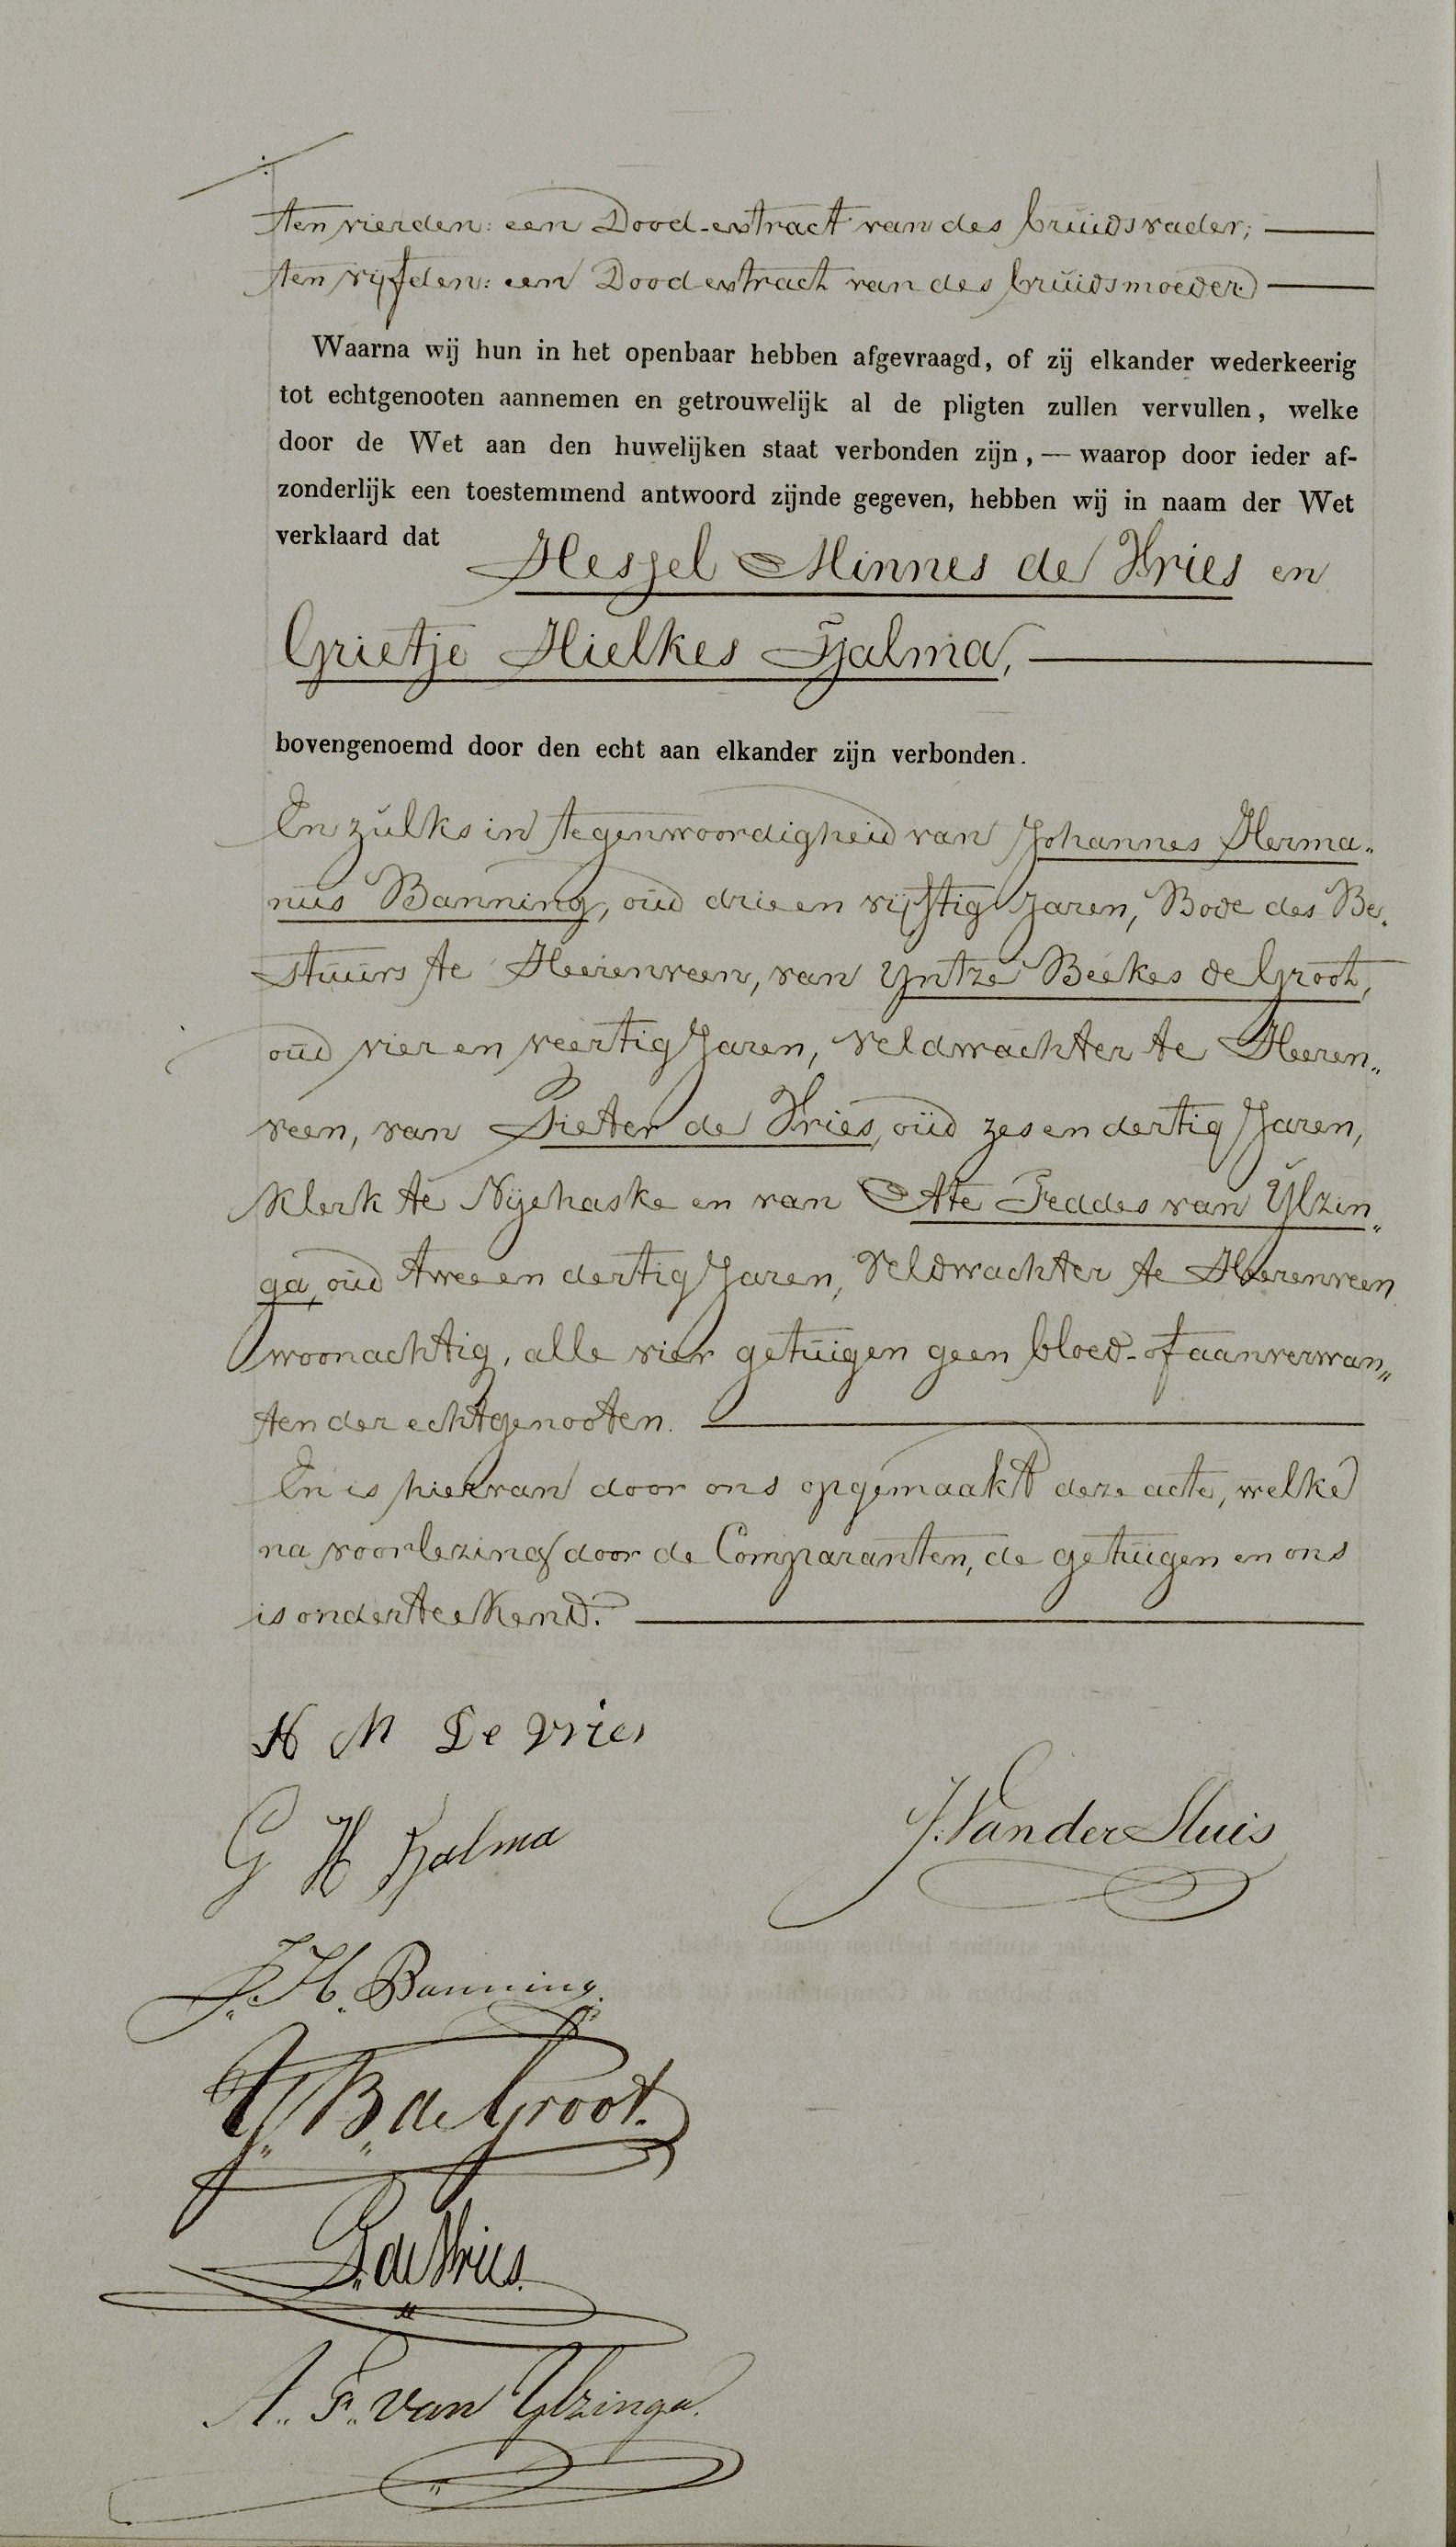 ten vierden: een Dood-extract van des bruids vader;
ten vijfden: een Dood extract van des bruids moeder.
Waarna wij hun in het openbaar hebben afgevraagd, of zij elkander wederkeerig
tot echtgenooten aannemen en getrouwelijk al de pligten zullen vervullen, welke
door de Wet aan den huwelijken staat verbonden zijn, — waarop door ieder af-
zonderlijk een toestemmend antwoord zijnde gegeven, hebben wij in naam der Wet
verklaard dat Hessel Minnes de Vries en
Grietje Hielkes Tjalma,
bovengenoemd door den echt aan elkander zijn verbonden.
En zulks in tegenwoordigheid van Johannes Herma„
nus Banning, oud drie en vijftig Jaren, Bode des Be„
stuurs te Heerenveen, van Yntze Beekes de Groot,
oud vier en veertig Jaren, Veldwachter te Heeren„
veen, van Pieter de Vries, oud zes en dertig Jaren,
Klerk te Nijehaske en van Atte Feddes van Ylzin„
ga, oud twee en dertig Jaren, Veldwachter te Heerenveen
woonachtig, alle vier getuigen geen bloed- of aanverwan„
ten der echtgenooten.
En is hiervan door ons opgemaakt deze acte, welke
na voorlezing door de Comparanten, de getuigen en ons
is onderteekend.
H M De Vries
G H Tjalma
J. Van der Sluis
J. H. Banning.
Y„ B„ de Groot.
P. de Vries.
A„ F„ van Ylzinga.